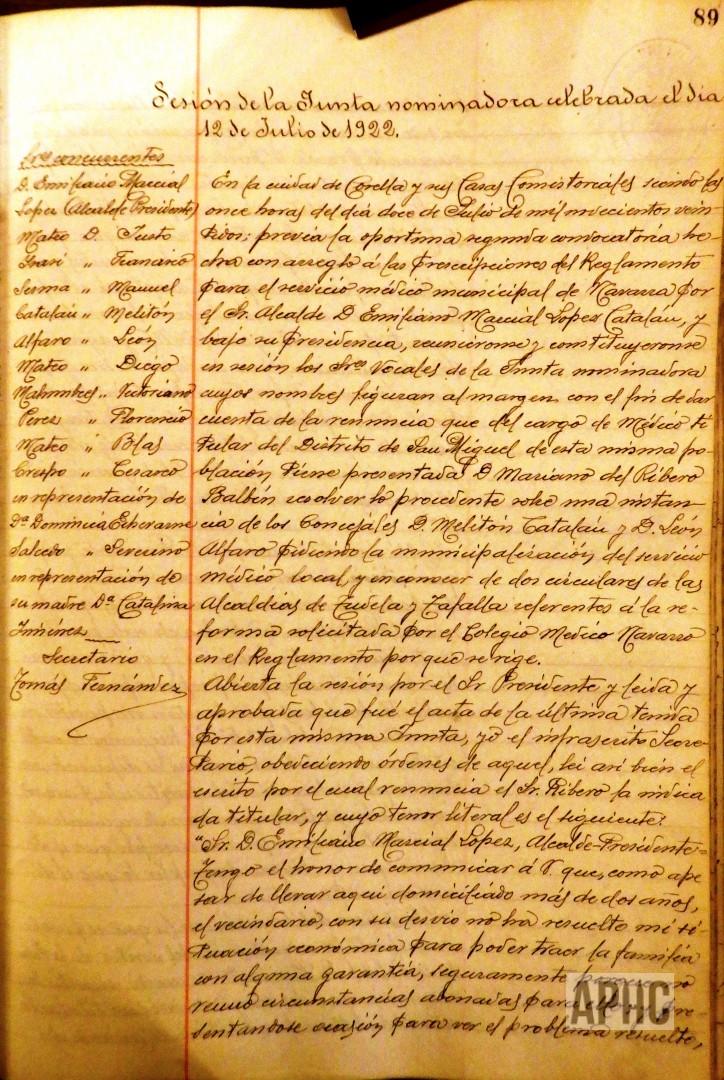 89
Sesión de la Junta nominadora celebrada el día
12 de Julio de 1922.
Sres concurrentes
D. Emiliano Marcial
Lopez (Alcalde Presidente)
Mateo D. Justo
" Francisco
Serma " Manuel
Catalán " Melitón
Alfaro " León
Mateo " Diego
" Victoriano
Perez " Florencio
Mateo " Blas
Crespo " Cesareo
en representación de
Dª Dominica Echevarne
Salcedo " Severino
en representación de
su madre Dª Catalina
Jiménez
Secretario
Tomás Fernández
En la ciudad de Corella y sus Casas Consistoriales siendo las
once horas del día doce de Julio de mil novecientos vein-
tidos; previa la oportuna segunda convocatoria he-
cha con arreglo á las prescripciones del Reglamento
para el servicio médico municipal de Navarra por
el Sr. Alcalde D Emiliano Marcial Lopez Catalán, y
bajo su Presidencia, reunieronse y constituyeronse
en sesión los Sres Vocales de la Junta nominadora
cuyos nombres figuran al margen con el fin de dar
cuenta de la renuncia que del cargo de Médico ti-
tular del Distrito de San Miguel de esta misma po-
blación tiene presentada D Mariano del Ribero
Balbín resolver lo procedente sobre una instan-
cia de los Concejales D. Melitón Catalán y D. León
Alfaro pidiendo la municipalización del servicio
médico local, y en conocer de dos circulares de las
Alcaldias de Tudela y Tafalla referentes á la re-
forma solicitada por el Colegio Medico Navarro
en el Reglamento porque se rige.
Abierta la sesión por el Sr Presidente y leida y
aprobada que fué el acta de la última tenida
por esta misma Junta, yo el infrascrito Secre-
tario, obedeciendo órdenes de aquel, leí asi bien el
escrito por el cual renuncia el Sr. Ribero la indica-
da titular, y cuyo tenor literal es el siguiente:
"Sr. D. Emiliano Marcial Lopez, Alcalde-Presidente=
Tengo el honor de comunicar á V. que, como ape-
sar de llevar aquí domiciliado más de dos años,
el vecindario, con su desvio no ha resuelto mi si-
tuación económica para poder traer la familia
con alguna garantía, seguramente
circunstancias abonadas para pre-
sentandose ocasión para ver el problema resuelto,
APHC